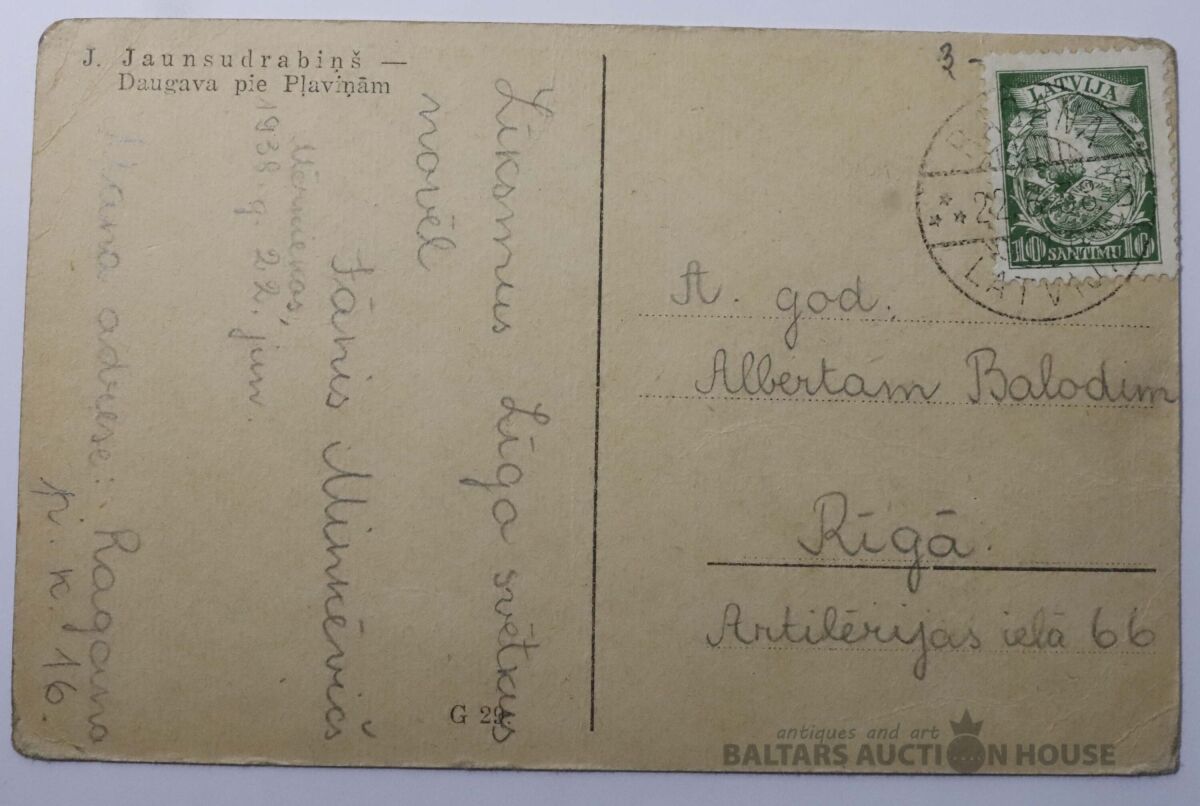 J. Jaunsudrabiņš —
Daugava pie Pļaviņām
Līksmus Līgo svētkus
novēl
Jānis Minkēvičs
1938. g. 22. jun.
Mana adrese: Ragana
p. k. 16.
G 29
3 -
LATVIJA
10 SANTIMU 10
22
LATVIJA
A. god.
Albertam Balodim
Rīgā.
Artilērijas ielā 66
antiques and art
BALTARS AUCTION HOUSE